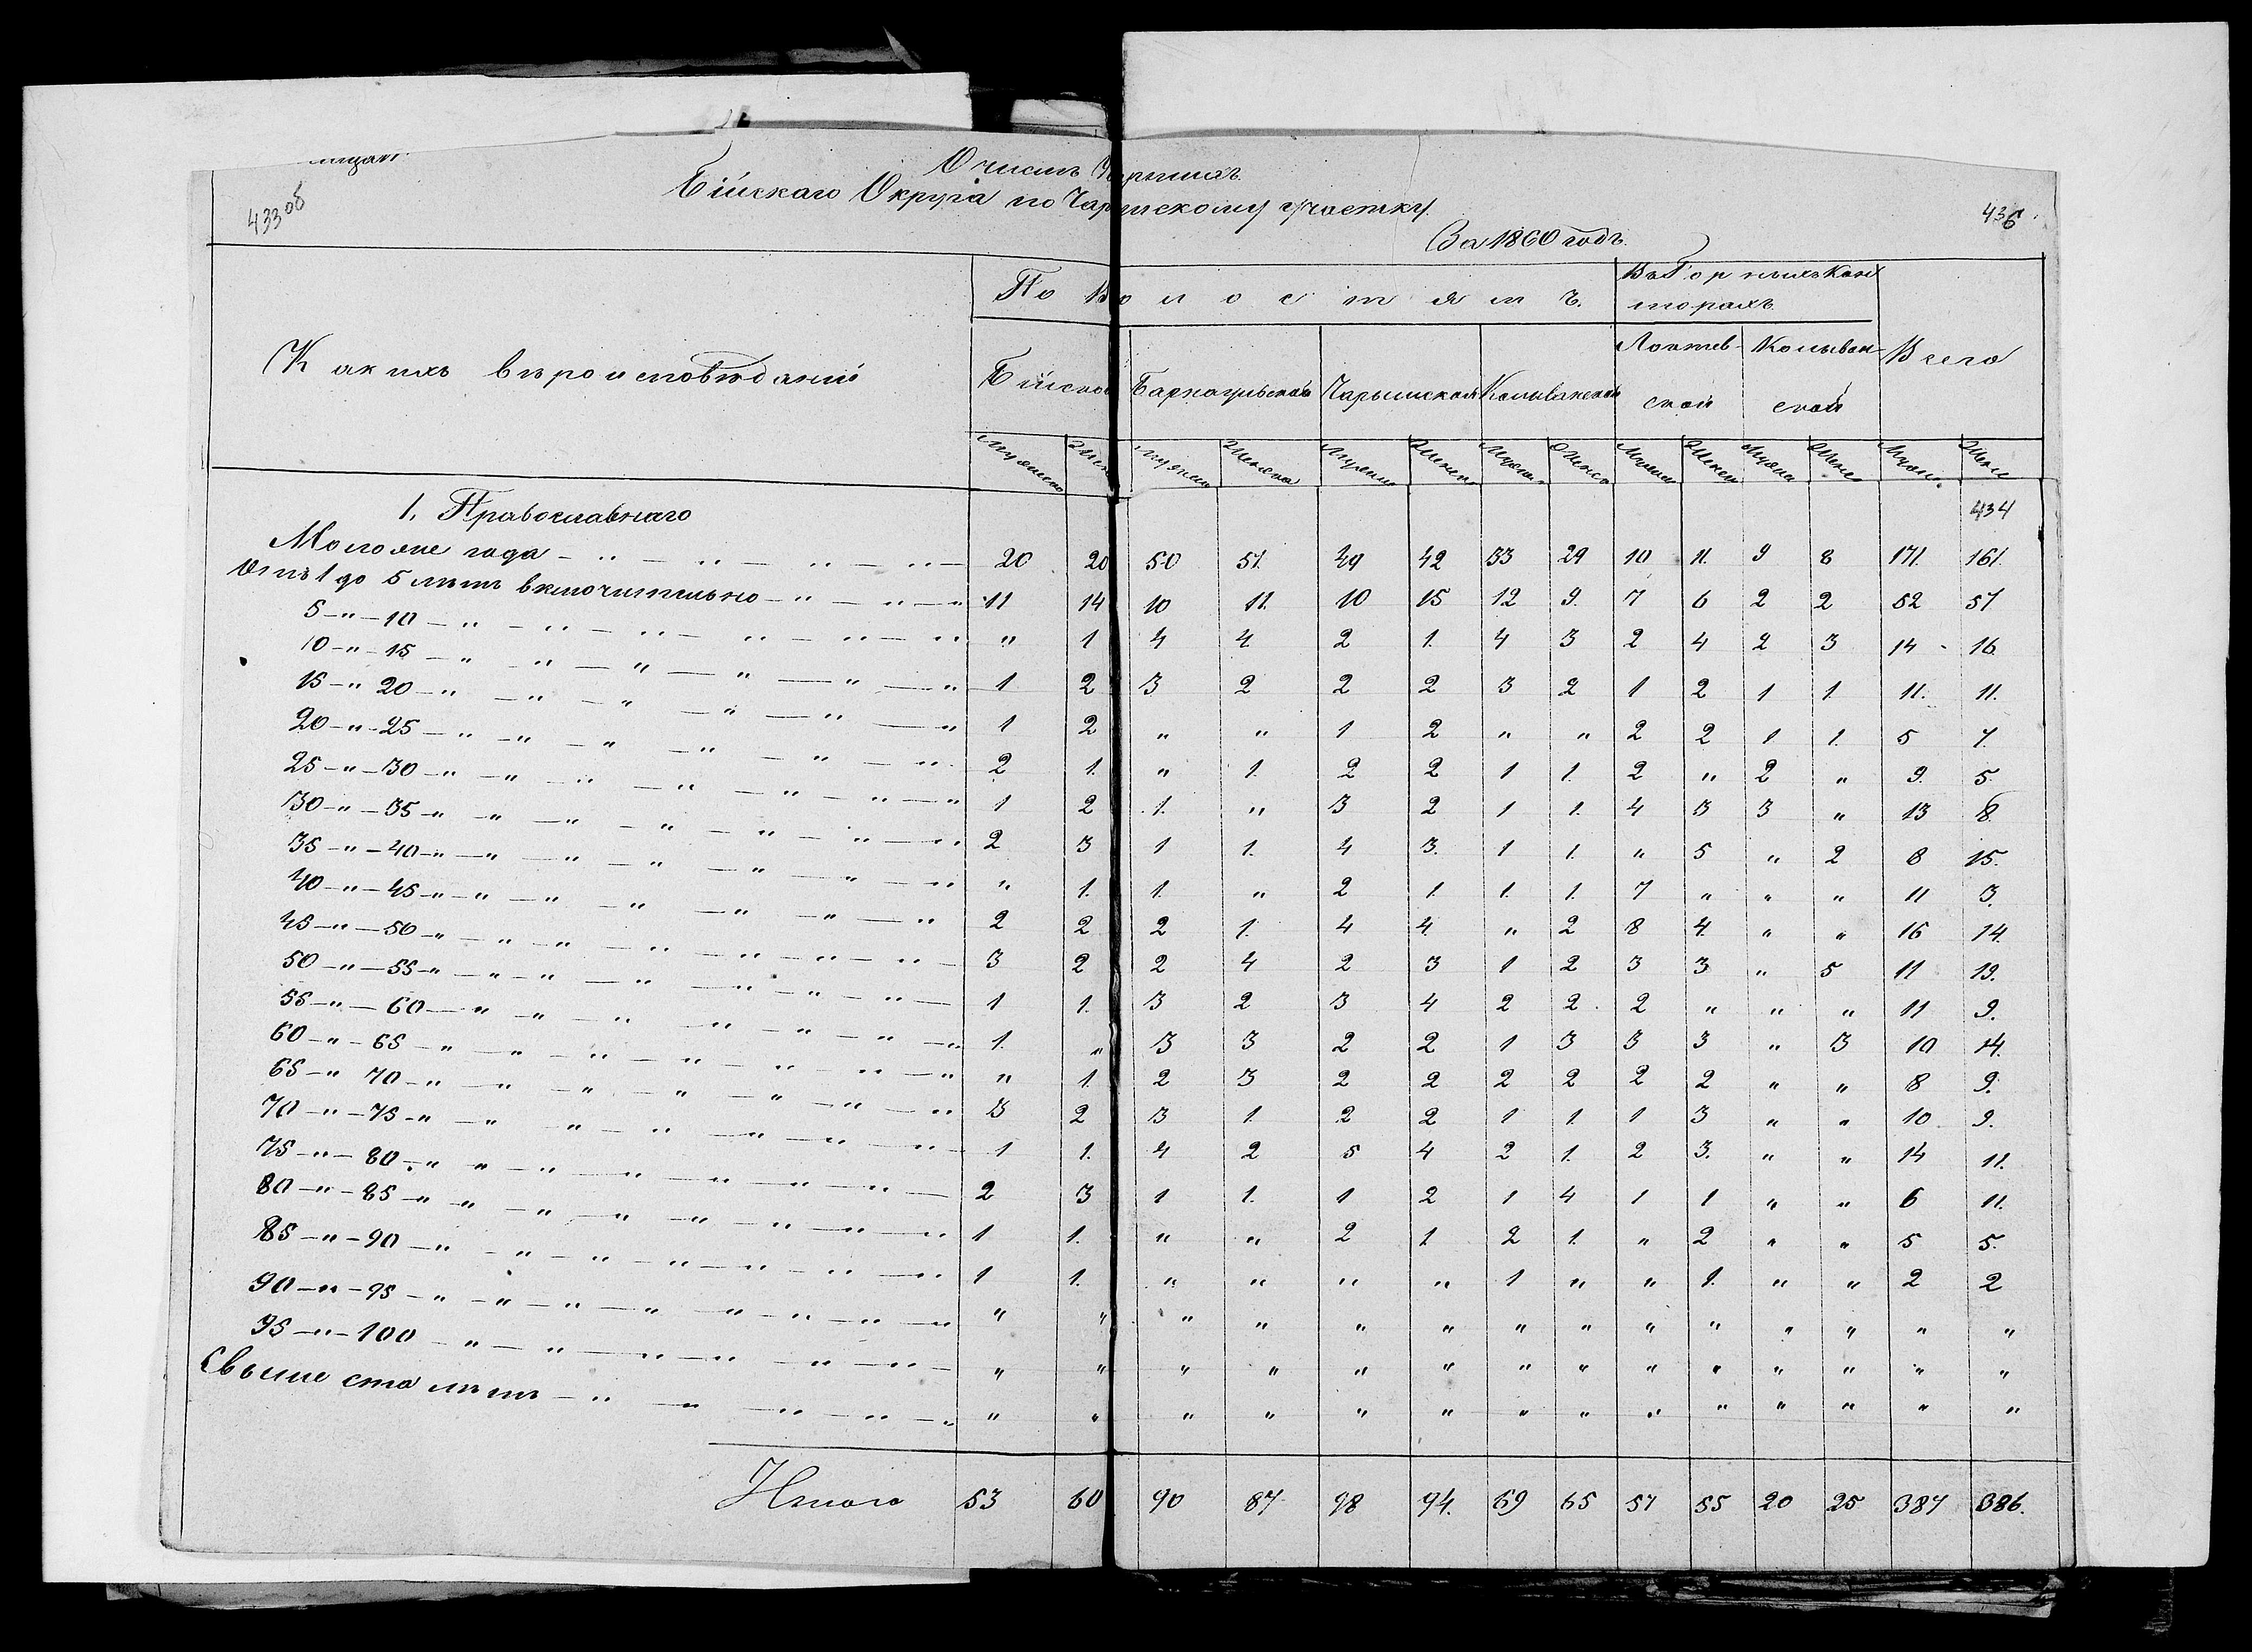 433 об
О числѣ Умершихъ
436
Бійскаго Округа по Чарышскому участку.
За 1860 годъ.
Какихъ вѣроисповѣданій
По Волостямъ.
Въ Горныхъ Кон
торахъ
Всего
Бійской Барнаульской Чарышской Колыванской Локтев- ской Колыван- ской
Мужеска Женс Мужеска Женска Мужеск Женск Мужск Женск Мужск Женск Мужск Женск Мужск Женск
1. Православнаго 434
Моложе года - " - " - " - " - 20 20 50 51. 49 42 33 29 10 11. 9 8 171. 161.
Отъ 1 до 5 лѣтъ включительно - " - " - " 11 14 10 11. 10 15 12 9. 7 6 2 2 52 57
5 - " - 10 - " - " - " - " - " - " " 1 4 4 2 1. 4 3 2 4 2 3 14 16.
10 - " - 15 - " - " - " - " - " - " 1 2 3 2 2 2 3 2 1 2 1 1. 11. 11.
15 - " 20 - " - " - " - " - " - " 1 2 " " 1 2 " " 2 2 1 1. 5 7.
20 - " - 25 - " - " - " - " - " - " 2 1. " 1. 2 2 1 1. 2 " 2 " 9. 5.
25 - " - 30 - " - " - " - " - " - " - " 1 2 1. " 3 2 1 1. 4 3 3 " 13 8.
30 - " - 35 - " - " - " - " - " - " - " 2 3 1 1. 4 3. 1 1. " 5 " 2 8 15.
35 - " - 40 - " - " - " - " - " - " - " " 1. 1. " 2 1. 1. 1. 7 " " " 11 3.
40 - " - 45 - " - " - " - " - " - " - " 2 2 2 1. 4 4. " 2 8 4. " " 16 14.
45 - " - 50 - " - " - " - " - " - " - " - 3 2 2 4 2 3 1 2 3 3 " 5 11 19.
50 - " - 55 - " - " - " - " - " - " - " - 1 1. 3 2 3 4 2 2. 2 " " " 11 9.
55 - " - 60 - " - " - " - " - " - " - " 1. " 3 3 2 2 1 3 3 3 " 3 10 14.
60 - " - 65 - " - " - " - " - " - " - " " 1. 2 3 2 2 2 2 2 2 " " 8 9.
65 - " 70 - " - " - " - " - " - " - " 3 2 3 1. 2 2 1 1. 1 3 " " 10 9.
70 - " - 75 - " - " - " - " - " - " - " 1 1. 4 2 5 4 2 1. 2 3. " " 14 11.
75 - " - 80 - " - " - " - " - " - " - " - 2 3 1 1. 1 2 1 4 1 1 " " 6 11.
80 - " - 85 - " - " - " - " - " - " - " - " 1 1. " " 2 1 2 1. " 2 " " 5 5.
85 - " - 90 - " - " - " - " - " - " - " 1 1. " " " " 1 " " 1. " " 2 2
90 - " - 95 - " - " - " - " - " - " - " - " " " " " " " " " " " " " " "
95 - " - 100 - " - " - " - " - " - " - " " " " " " " " " " " " " "
Свыше ста лѣтъ - " - " - " - " - " " " " " " " " " " " " " " "
Итого 53 60 90 87 98 94. 69 65 57 55 20 25 387 386.